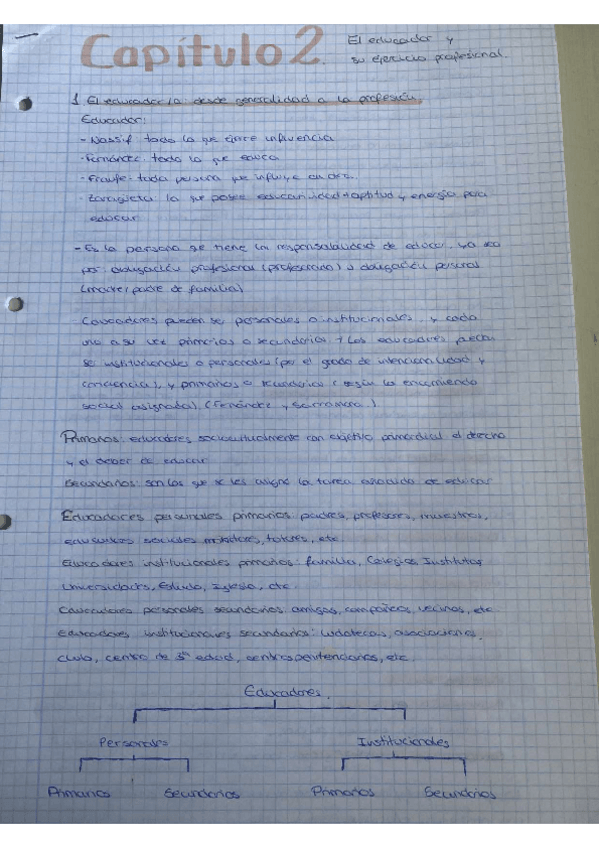 Capítulo 2.
El educador y
su ejercicio profesional.
1. El educador/a desde generalidad a la profesión
Educador:
- Nassif: todo lo que ejerce influencia
- Fernández: todo lo que educa
- Fraufe: toda persona que influye en otro.
- Zaragüeta: lo que posee educatividad = aptitud y energía para
educar
- Es la persona que tiene una responsabilidad de educar, ya sea
por delegación profesional (profesorado) o delegación personal
(madre, padre de familia)
Educadores pueden ser personales o institucionales, y cada
uno a su vez primarios o secundarios. Los educadores pueden
ser institucionales o personales (por el grado de intencionalidad y
conciencia), y primarios o secundarios (según la encomienda
social asignada). (Fernández y Sarramona)
Primarios: educadores socioculturalmente con objetivo primordial el derecho
y el deber de educar
Secundarios: son los que se les asigna la tarea añadida de educar
Educadores personales primarios: padres, profesores, maestros,
educadores sociales, monitores, tutores, etc
Educadores institucionales primarios: familia, Colegios, Institutos,
Universidades, Estado, Iglesia, etc.
Educadores personales secundarios: amigos, compañeros, vecinos, etc
Educadores institucionales secundarios: ludotecas, asociaciones,
clubs, centro de 3ª edad, centros penitenciarios, etc
Educadores.
Personales Institucionales
Primarios Secundarios Primarios Secundarios